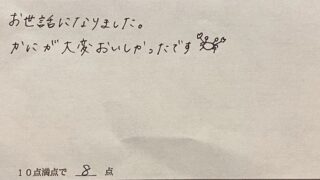 お世話になりました。
かにが大変おいしかったです
10点満点で 8 点